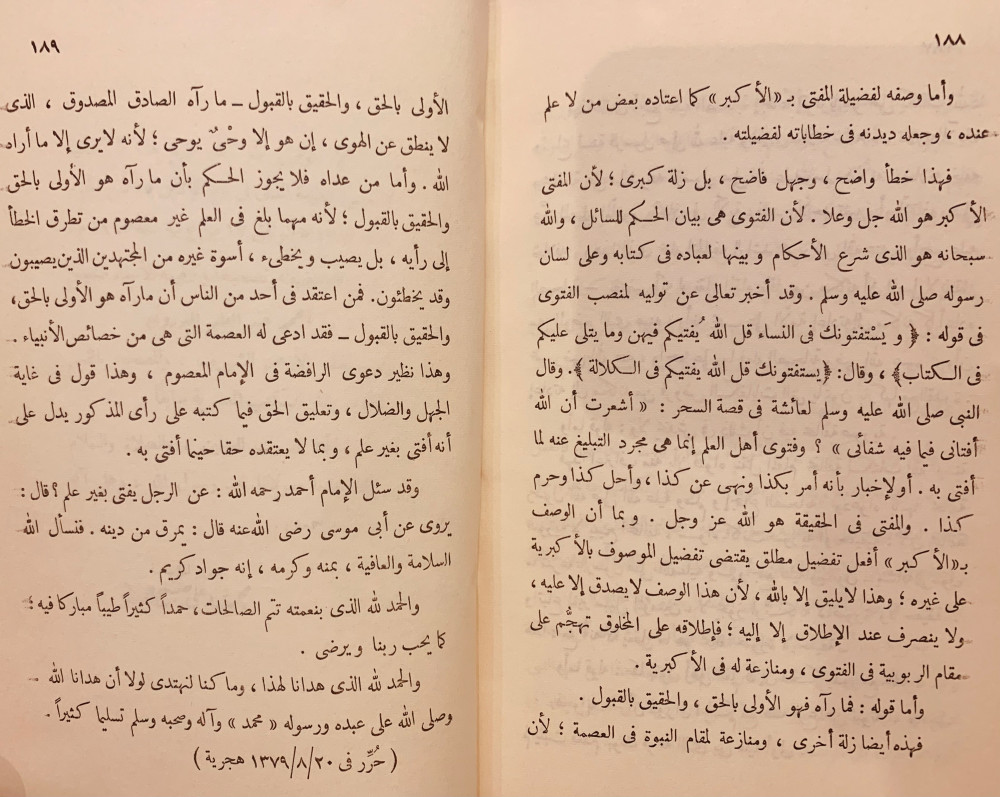 ١٨٨
وأما وصفه لفضيلة المفتى بـ «الأكبر» كما اعتاده بعض من لا علم
عنده ، وجعله ديدنه فى خطاباته لفضيلته .
فهذا خطأ واضح ، وجهل فاضح ، بل زلة كبرى ؛ لأن المفتى
الأكبر هو الله جل وعلا . لأن الفتوى هى بيان الحكم للسائل ، والله
سبحانه هو الذى شرع الأحكام وبينها لعباده فى كتابه وعلى لسان
رسوله صلى الله عليه وسلم . وقد أخبر تعالى عن توليه لمنصب الفتوى
فى قوله : ﴿ ويَسْتفتونك فى النساء قل الله يُفتيكم فيهن وما يتلى عليكم
فى الكتاب﴾ ، وقال: ﴿يستفتونك قل الله يفتيكم فى الكلالة ﴾. وقال
النبى صلى الله عليه وسلم لعائشة فى قصة السحر : « أشعرت أن الله
أفتانى فيما فيه شفائى » ؟ وفتوى أهل العلم إنما هى مجرد التبليغ عنه لما
أفتى به . أو الإخبار بأنه أمر بكذا ونهى عن كذا ، وأحل كذا وحرم
كذا . والمفتى فى الحقيقة هو الله عز وجل . وبما أن الوصف
بـ«الأكبر » أفعل تفضيل مطلق يقتضى تفضيل الموصوف بالأكبرية
على غيره ؛ وهذا لايليق إلا بالله ، لأن هذا الوصف لايصدق إلا عليه ،
ولا ينصرف عند الإطلاق إلا إليه ؛ فإطلاقه على المخلوق تهجُّم على
مقام الربوبية فى الفتوى ، ومنازعة له فى الأكبرية .
وأما قوله : فما رآه فهو الأولى بالحق ، والحقيق بالقبول .
فهذه أيضا زلة أخرى ، ومنازعة لمقام النبوة فى العصمة ؛ لأن
١٨٩
الأولى بالحق ، والحقيق بالقبول ــ ما رآه الصادق المصدوق ، الذى
لا ينطق عن الهوى ، إن هو إلا وحْىٌ يوحى ؛ لأنه لايرى إلا ما أراه
الله . وأما من عداه فلا يجوز الحكم بأن ما رآه هو الأولى بالحق
والحقيق بالقبول ؛ لأنه مهما بلغ فى العلم غير معصوم من تطرق الخطأ
إلى رأيه ، بل يصيب ويخطىء ، أسوة غيره من المجتهدين الذين يصيبون
وقد يخطئون. فمن اعتقد فى أحد من الناس أن مارآه هو الأولى بالحق،
والحقيق بالقبول ــ فقد ادعى له العصمة التى هى من خصائص الأنبياء .
وهذا نظير دعوى الرافضة فى الإمام المعصوم ، وهذا قول فى غاية
الجهل والضلال ، وتعليق الحق فيما كتبه على رأى المذكور يدل على
أنه أفتى بغير علم ، وبما لا يعتقده حقا حينما أفتى به .
وقد سئل الإمام أحمد رحمه الله : عن الرجل يفتى بغير علم ؟ قال :
يروى عن أبى موسى رضى الله عنه قال : يمرق من دينه . فنسأل الله
السلامة والعافية ، بمنه وكرمه ، إنه جواد كريم .
والحمد لله الذى بنعمته تتم الصالحات، حمداً كثيراً طيباً مباركا فيه ؛
كما يحب ربنا ويرضى .
والحمد لله الذى هدانا لهذا ، وما كنا لنهتدى لولا أن هدانا الله .
وصلى الله على عبده ورسوله « محمد » وآله وصحبه وسلم تسليما كثيراً .
( حُرِّر فى ١٣٧٩/٨/٢٠ هجرية )